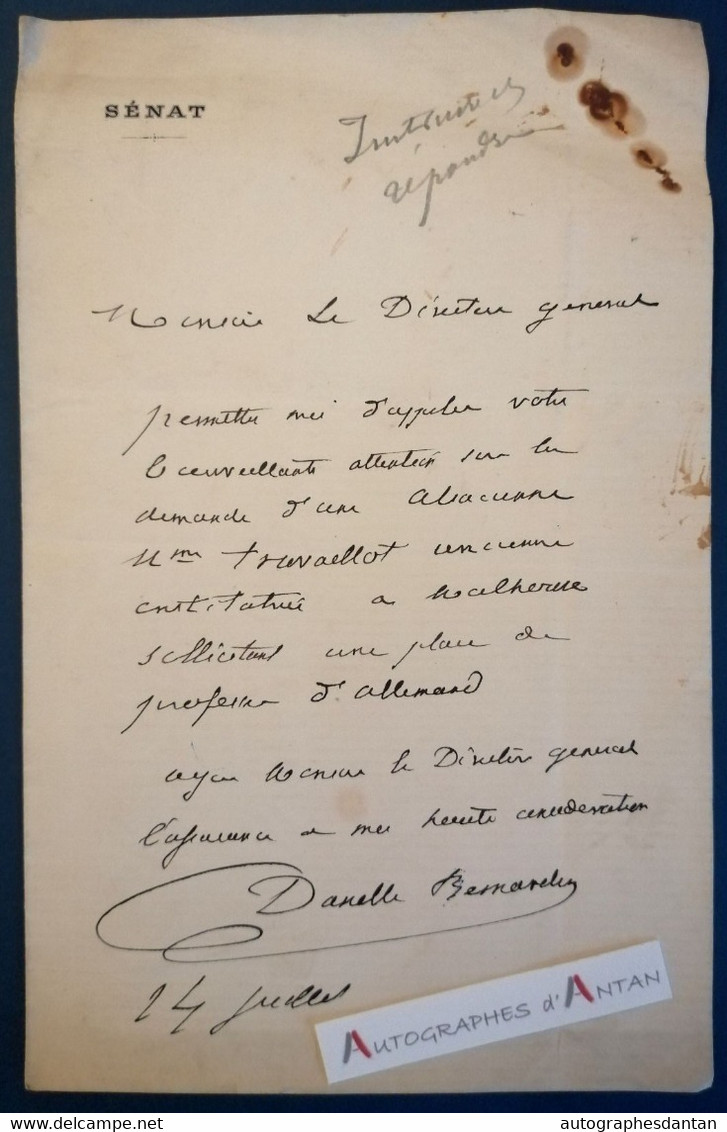 SÉNAT
répondre
Monsieur Le Directeur general
permettez moi d'appeler votre
bienveillante attention sur la
demande d'une alsacienne
Mme travaillot ancienne
institutrice a Malherue
sollicitant une place de
professeur d'allemand
agréer Monsieur le Directeur general
l'assurance de ma haute consideration
Danelle Bernardin
14 juillet
AUTOGRAPHES d'ANTAN
delcampe.net
autographesdantan